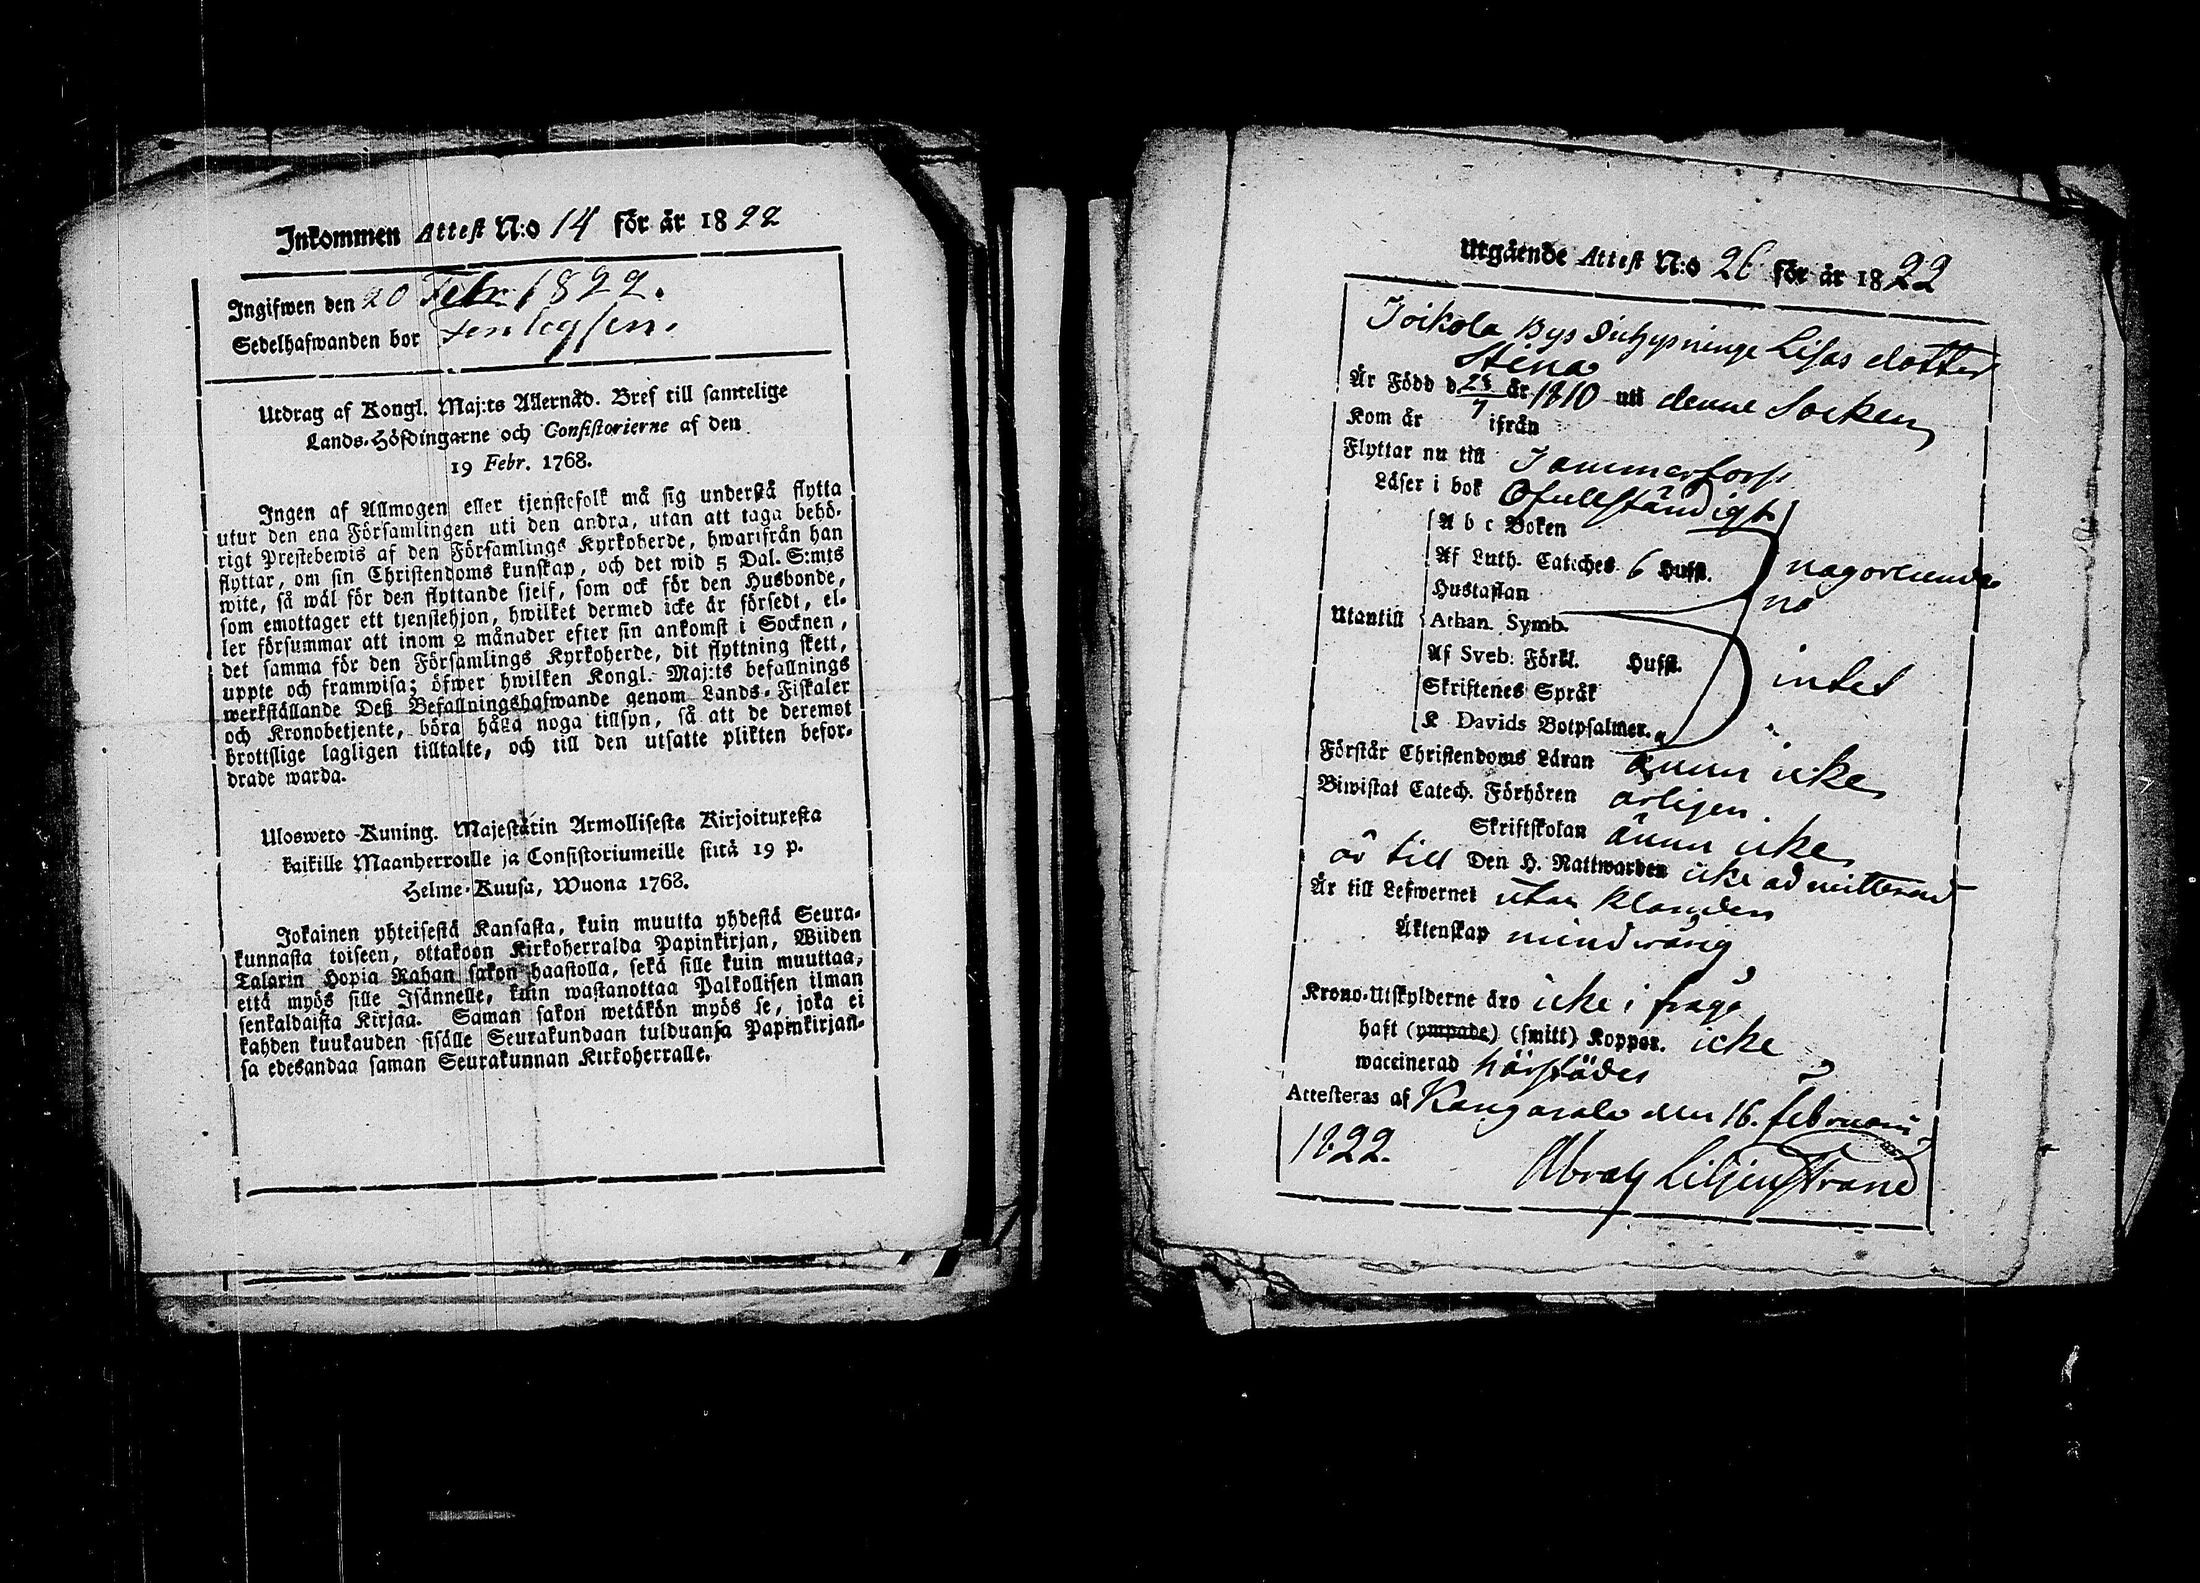 Inkommen Attest N:o 14 för år 1822
Ingifwen den 20 Febr. 1822.
Sedelhafwanden bor
Utdrag af Kongl. Maj:ts Allernåd. Bref till samtelige
Lands-Höfdingarne och Consistorierne af den
19 Febr. 1768.
Ingen af Allmogen eller tjenstefolk må sig understå flytta
utur den ena Församlingen uti den andra, utan att taga behö-
rigt Prestebewis af den Församlings Kyrkoherde, hwarifrån han
flyttar, om sin Christendoms kunskap, och det wid 5 Dal. S:mts
wite, så wäl för den flyttande sjelf, som ock för den Husbonde,
som emottager ett tjenstehjon, hwilket dermed icke är försedt, el-
ler försummar att inom 2 månader efter sin ankomst i Socknen,
det samma för den Församlings Kyrkoherde, dit flyttning skett,
uppte och framwisa; öfwer hwilken Kongl. Maj:ts befallnings
werkställande Deß Befallningshafwande genom Lands-Fiskaler
och Kronobetjente, böra hålla noga tillsyn, så att de deremot
brottslige lagligen tilltalte, och till den utsatte plikten befor-
drade warda.
Ulosweto Kuning. Majestätin Armollisesta Kirjoituxesta
kaikille Maanherroille ja Consistoriumeille siitä 19 p.
Helme-Kuusa, Wuona 1768.
Jokainen yhteisestä Kansasta, kuin muutta yhdestä Seura-
kunnasta toiseen, ottakoon Kirkoherralda Papinkirjan, Wiiden
Talarin Hopia Rahan sakon haastolla, sekä sille kuin muuttaa,
että myös sille Isännelle, kuin wastanottaa Palkollisen ilman
senkaldaista Kirjaa. Saman sakon wetäkön myös se, joka ei
kahden kuukauden sisälle Seurakundaan tulduansa Papinkirjan-
sa edesandaa saman Seurakunnan Kirkoherralle.
Utgående Attest N:o 26 för år 1822
Joikola Bys Inhysninge Lisas dotter
Stina
Är Född d 25/7 år 1810 uti denne Socken
Kom år ifrån
Flyttar nu till Jammerfors
Läser i bok Ofullständigt
A b c Boken
Af Luth. Cateches 6 Hufst. någorlunda
Hustaflan
Utantill Athan. Symb.
Af Sveb: Förkl. Hufst. intet
Skriftenes Språk
K Davids Botpsalmer.
Förstår Christendoms Läran ännu icke
Biwistat Catech. Förhören årligen.
Skriftskolan ännu icke
är till Den H. Nattwarden icke admitterad
Är till Lefwernet utan klander
Äktenskap mindrårig
Krono-Utskylderne äro icke i fråga
haft (ympade) (smitt) Koppor. icke
waccinerad härstädes
Attesteras af Kangasala den 16. februarii
1822.
Abrah Liljenstrand